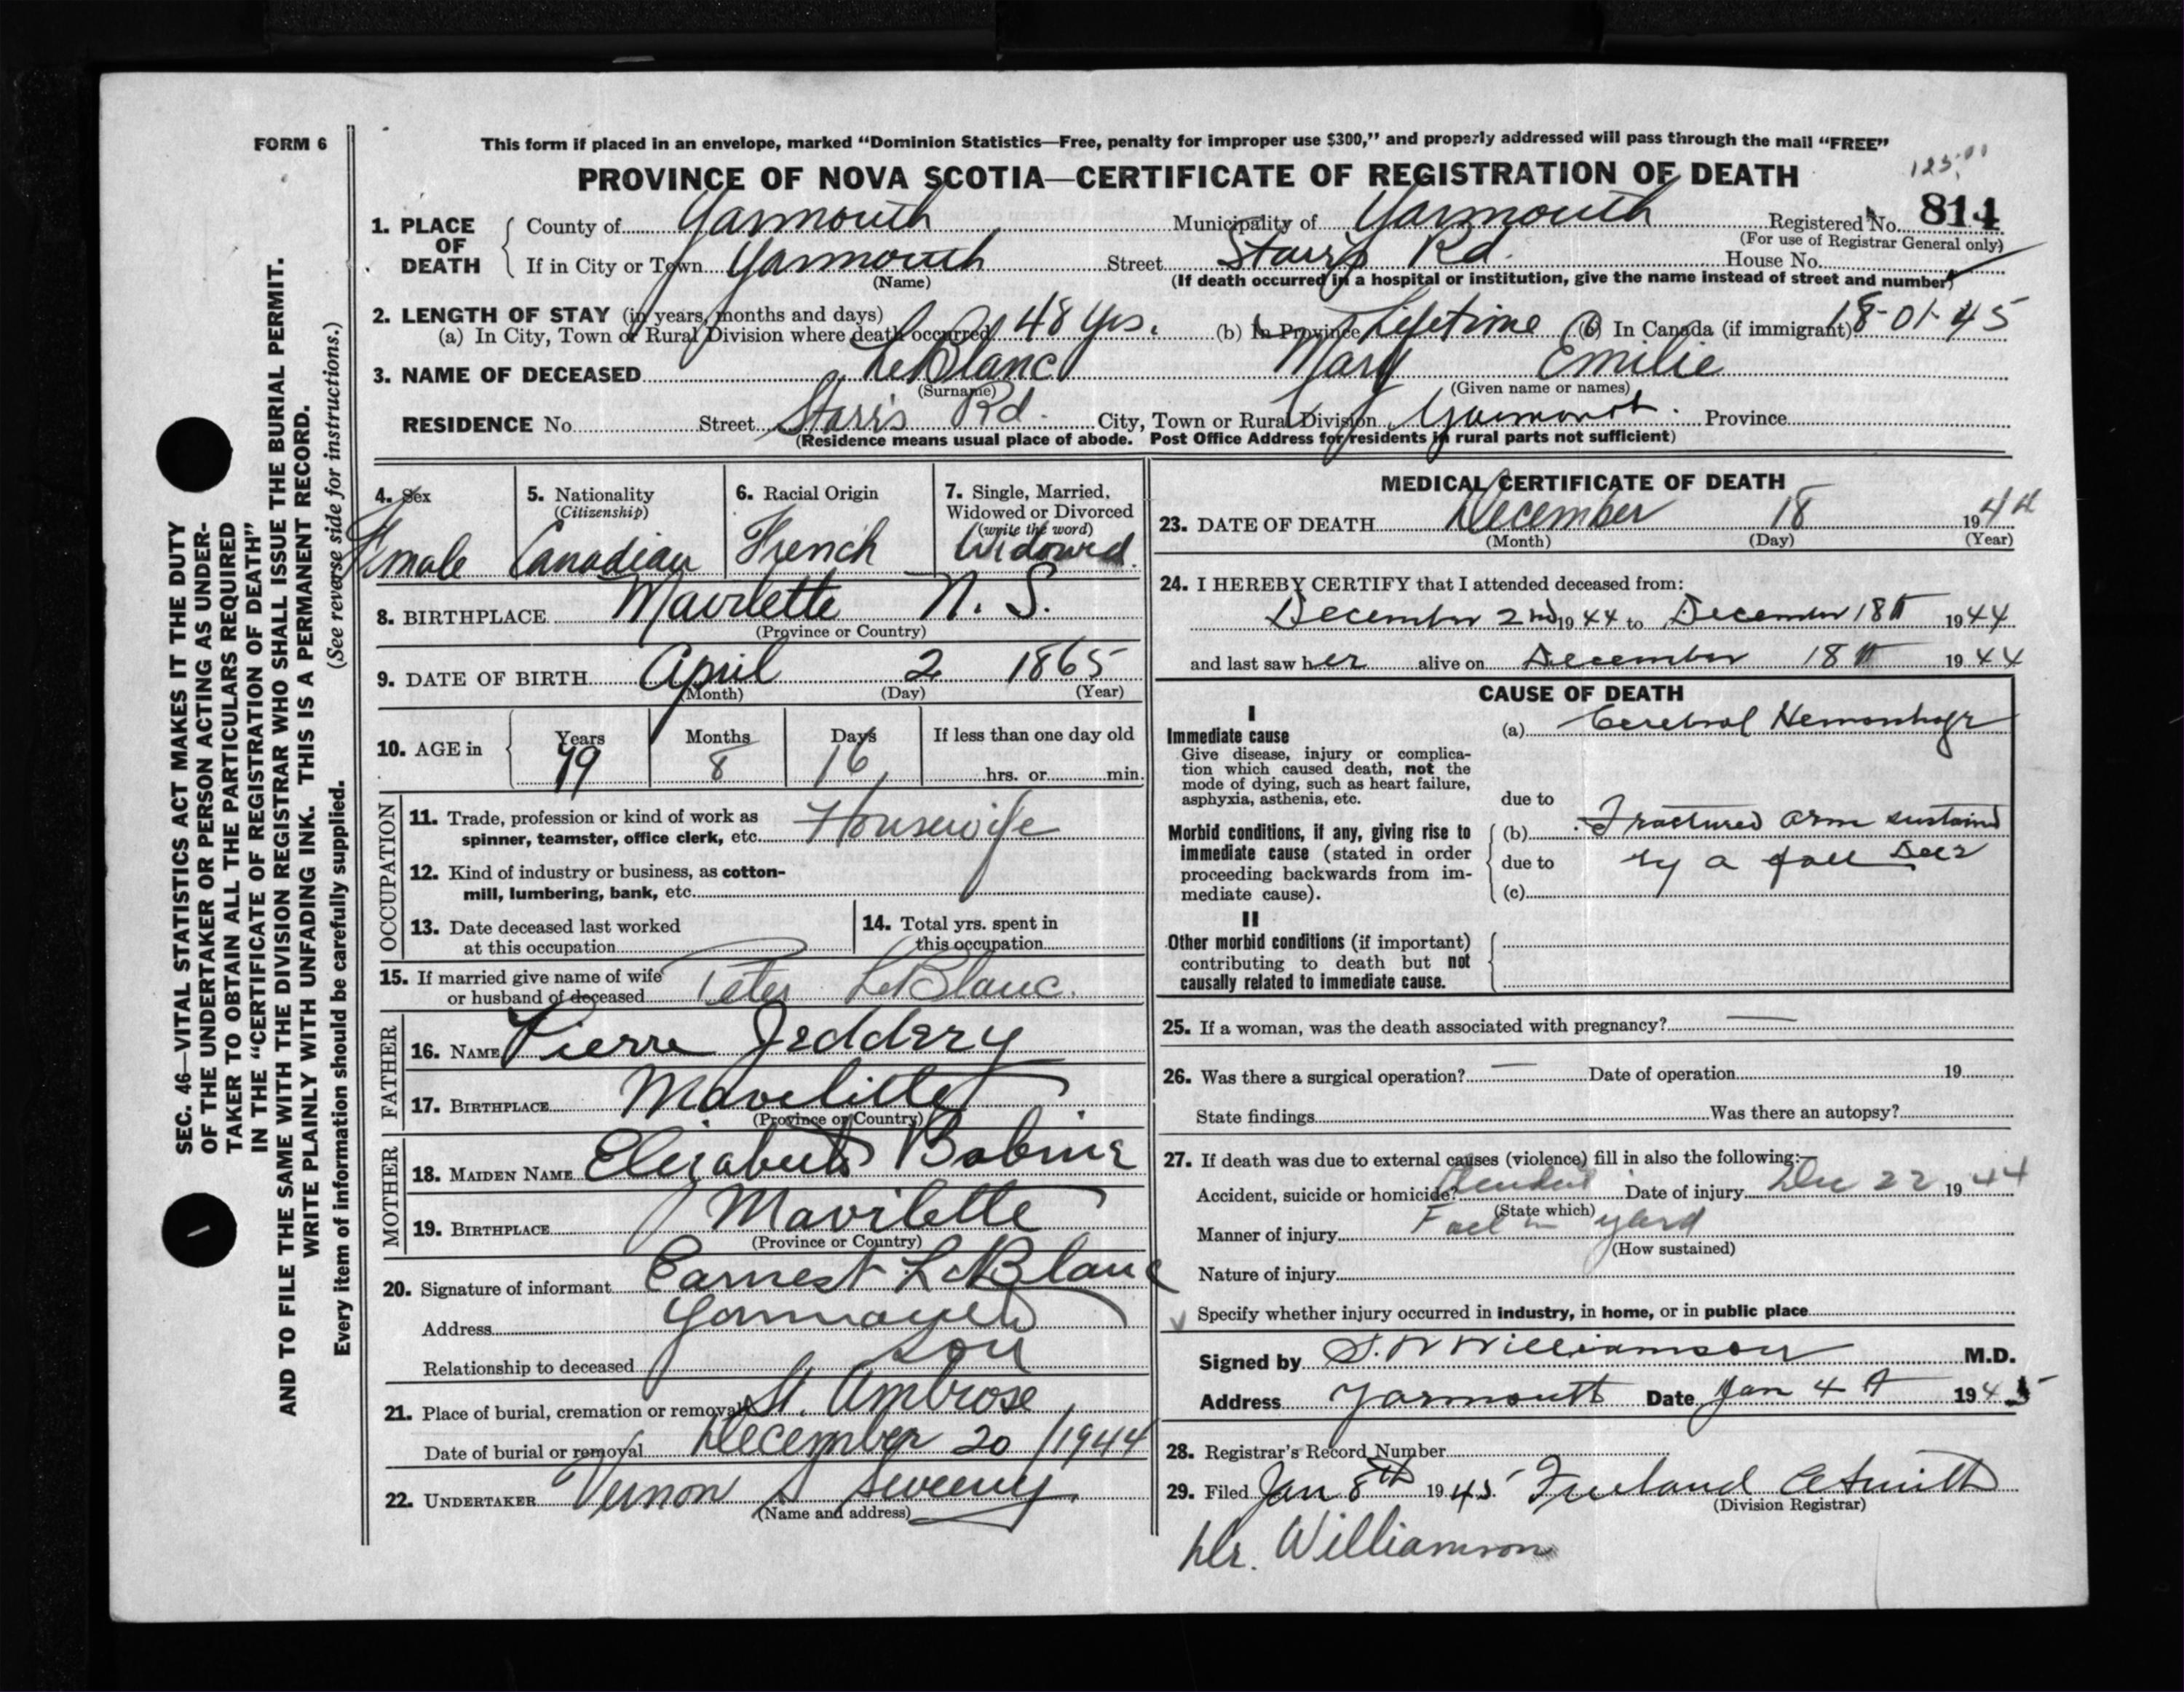 FORM 6
This form if placed in an envelope, marked “Dominion Statistics—Free, penalty for improper use $300,” and properly addressed will pass through the mail “FREE”
PROVINCE OF NOVA SCOTIA—CERTIFICATE OF REGISTRATION OF DEATH
1. PLACE OF DEATH County of Yarmouth Municipality of Yarmouth Registered No. 814
(For use of Registrar General only)
If in City or Town Yarmouth Street Starr's Rd. House No.
(Name) (If death occurred in a hospital or institution, give the name instead of street and number)
2. LENGTH OF STAY (in years, months and days)
(a) In City, Town or Rural Division where death occurred 48 yrs. (b) In Province Lifetime (c) In Canada (if immigrant) 18-01-45
3. NAME OF DECEASED LeBlanc Mary Emilie
(Surname) (Given name or names)
RESIDENCE No. Street Starr's Rd. City, Town or Rural Division Yarmouth. Province
(Residence means usual place of abode. Post Office Address for residents in rural parts not sufficient)
4. Sex 5. Nationality 6. Racial Origin 7. Single, Married,
(Citizenship) Widowed or Divorced
(write the word)
Female Canadian French Widowed.
8. BIRTHPLACE Mavilette N. S.
(Province or Country)
9. DATE OF BIRTH April 2 1865
(Month) (Day) (Year)
10. AGE in Years Months Days If less than one day old
79 8 16 hrs. or min.
OCCUPATION
11. Trade, profession or kind of work as
spinner, teamster, office clerk, etc. Housewife
12. Kind of industry or business, as cotton-
mill, lumbering, bank, etc.
13. Date deceased last worked
at this occupation
14. Total yrs. spent in
this occupation
15. If married give name of wife
or husband of deceased Peter LeBlanc.
FATHER
16. NAME Pierre Jeddery
17. BIRTHPLACE Mavilitte
(Province or Country)
MOTHER
18. MAIDEN NAME Elizabeth Babine
19. BIRTHPLACE Mavilette
(Province or Country)
20. Signature of informant Earnest LeBlanc
Address Yarmouth
Relationship to deceased son
21. Place of burial, cremation or removal St. Ambrose
Date of burial or removal December 20/1944
22. UNDERTAKER Vernon S Sweeny
(Name and address)
MEDICAL CERTIFICATE OF DEATH
23. DATE OF DEATH December 18 1944
(Month) (Day) (Year)
24. I HEREBY CERTIFY that I attended deceased from:
December 2nd 1944 to December 18th 1944
and last saw her alive on December 18th 1944
CAUSE OF DEATH
I
Immediate cause (a) Cerebral Hemorrhage
Give disease, injury or complica-
tion which caused death, not the
mode of dying, such as heart failure,
asphyxia, asthenia, etc. due to
Morbid conditions, if any, giving rise to (b) Fractured arm sustained
immediate cause (stated in order
proceeding backwards from im- due to by a fall Dec 2
mediate cause). (c)
II
Other morbid conditions (if important)
contributing to death but not
causally related to immediate cause.
25. If a woman, was the death associated with pregnancy? —
26. Was there a surgical operation? — Date of operation 19
State findings Was there an autopsy?
27. If death was due to external causes (violence) fill in also the following:—
Accident, suicide or homicide? Accident Date of injury Dec 22 1944
(State which)
Manner of injury Fall in yard
(How sustained)
Nature of injury
Specify whether injury occurred in industry, in home, or in public place
Signed by S. W Williamson M.D.
Address Yarmouth Date Jan 4th 1945
28. Registrar's Record Number
29. Filed Jan 8th 1945
(Division Registrar)
Dr. Williamson
SEC. 46—VITAL STATISTICS ACT MAKES IT THE DUTY
OF THE UNDERTAKER OR PERSON ACTING AS UNDER-
TAKER TO OBTAIN ALL THE PARTICULARS REQUIRED
IN THE “CERTIFICATE OF REGISTRATION OF DEATH”
AND TO FILE THE SAME WITH THE DIVISION REGISTRAR WHO SHALL ISSUE THE BURIAL PERMIT.
WRITE PLAINLY WITH UNFADING INK. THIS IS A PERMANENT RECORD.
Every item of information should be carefully supplied. (See reverse side for instructions.)